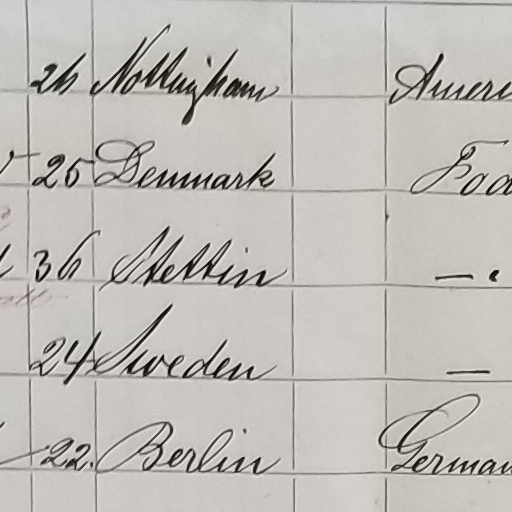 26 Nottingham Ameri
25 Denmark Foo
36 Stettin — "
24 Sweden —
22. Berlin German